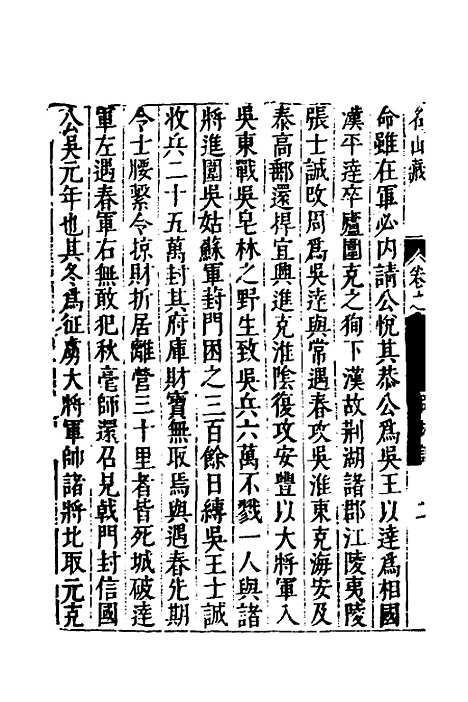 名山藏
卷之
二
命雖在軍必内請公悅其恭公爲吳王以達爲相國
漢平達卒廬圍克之狥下漢故荆湖諸郡江陵夷陵
張士誠改周爲吳達與常遇春攻吳淮東克海安及
泰高郵還捍宜興進克淮陰復攻安豐以大將軍入
吳東戰吳皂林之野生致吳兵六萬不戮一人與諸
將進圍吳姑蘇軍葑門困之三百餘日縛吳王士誠
收兵二十五萬封其府庫財寶無取焉與遇春先期
令士腰繫令掠財折居離營三十里者皆死城破達
軍左遇春軍右無敢犯秋毫師還召見戟門封信國
公吳元年也其冬爲征虜大將軍師諸將北取元克